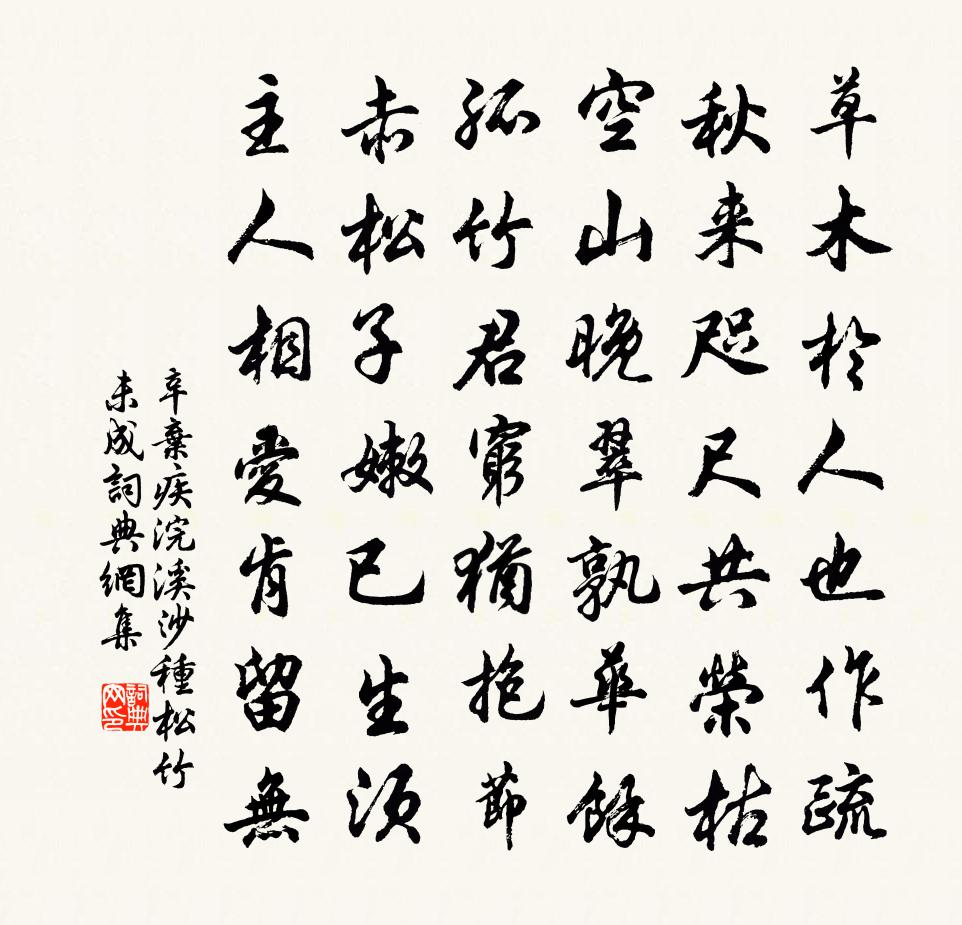 草木於人也作疏
秋来咫尺共榮枯
空山晚翠孰華餘
孤竹君窮猶抱節
赤松子嫩已生須
主人相愛肯留無
辛棄疾浣溪沙種松竹
未成詞典網集
詞典网印